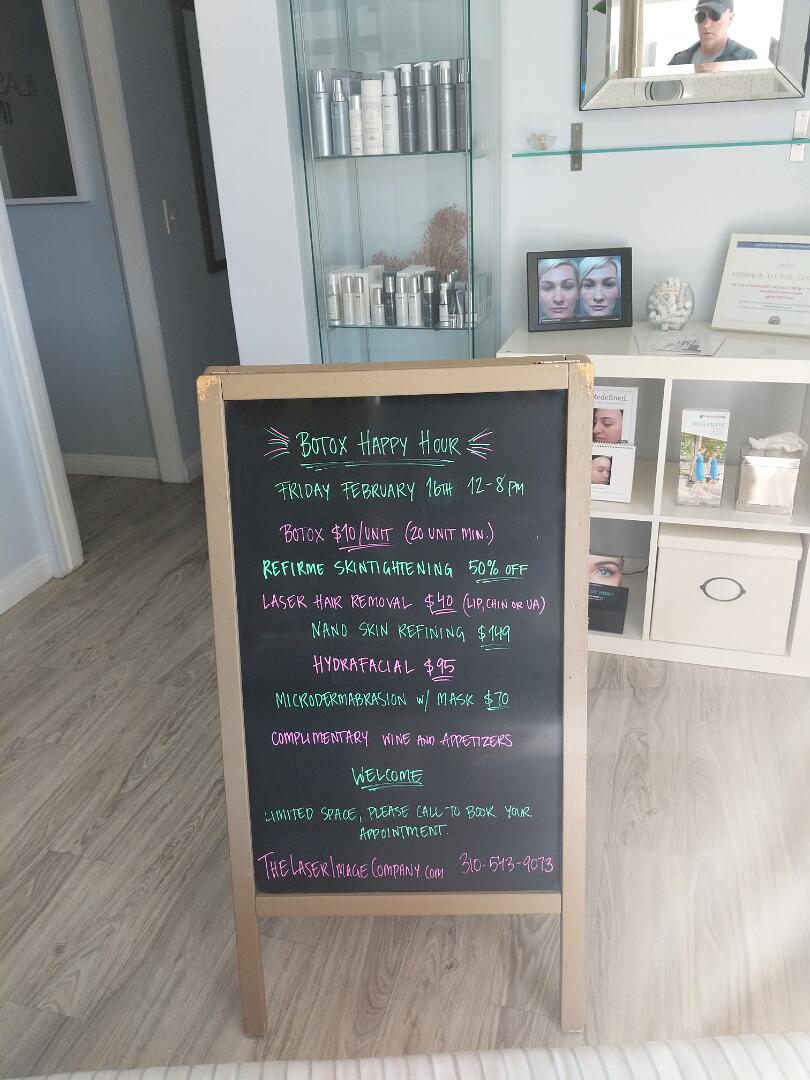 Redefined.
BOTOX HAPPY HOUR
FRIDAY FEBRUARY 16TH 12-8PM
BOTOX $10/UNIT (20 UNIT MIN.)
REFIRME SKINTIGHTENING 50% OFF
LASER HAIR REMOVAL $40 (LIP, CHIN OR UA)
NANO SKIN REFINING $149
HYDRAFACIAL $95
MICRODERMABRASION W/ MASK $70
COMPLIMENTARY WINE AND APPETIZERS
WELCOME
LIMITED SPACE, PLEASE CALL TO BOOK YOUR
APPOINTMENT.
THELASERIMAGECOMPANY.COM 310-543-9073